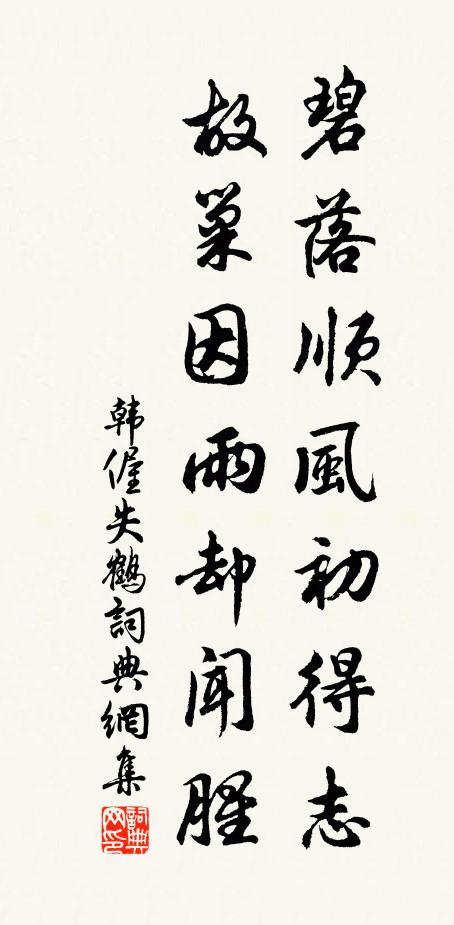 碧落順風初得志
故巢因雨却聞腥
韩偓失鶴詞典網集
詞典网印